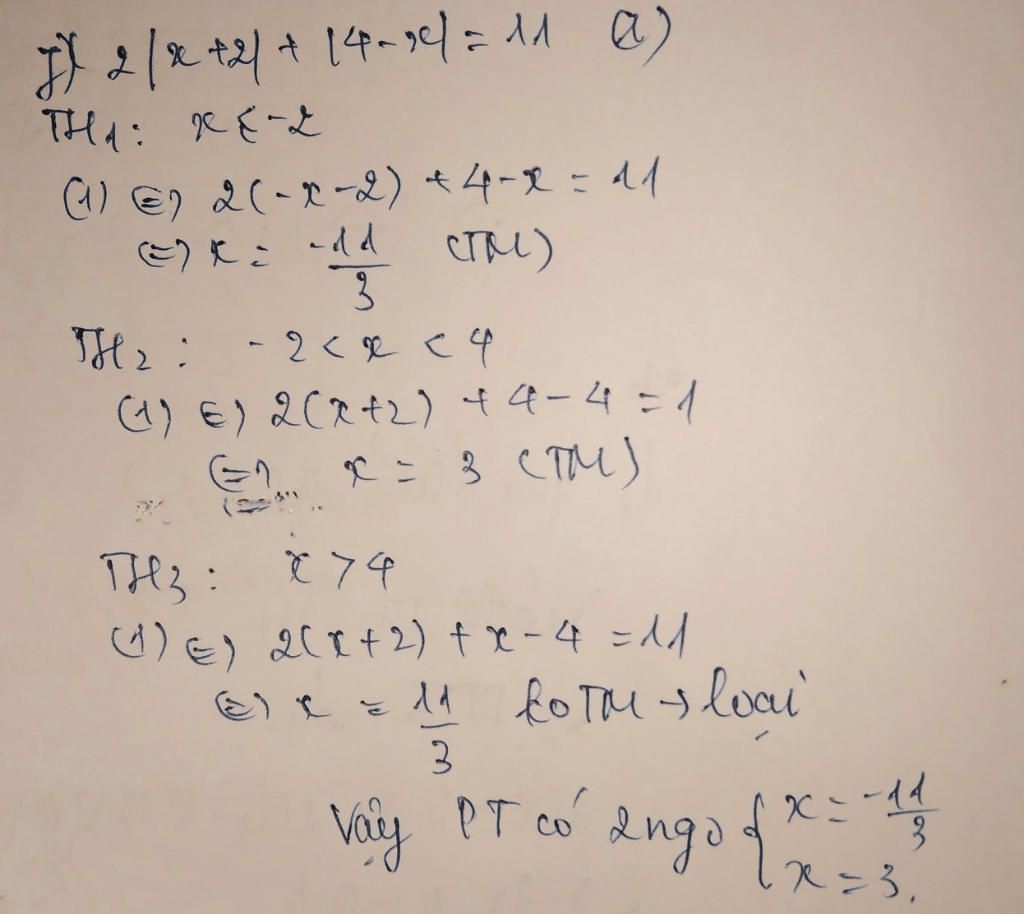 j) 2|x+2| + |4-x| = 11 (1)
TH1: x ≤ -2
(1) ⇔ 2(-x-2) + 4-x = 11
⇔ x = -11/3 (TM)
TH2: -2 < x < 4
(1) ⇔ 2(x+2) + 4-4 = 1
⇔ x = 3 (TM)
TH3: x > 4
(1) ⇔ 2(x+2) + x-4 = 11
⇔ x = 11/3 ko TM → loại
Vậy PT có 2 ngo { x = -11/3
x = 3.